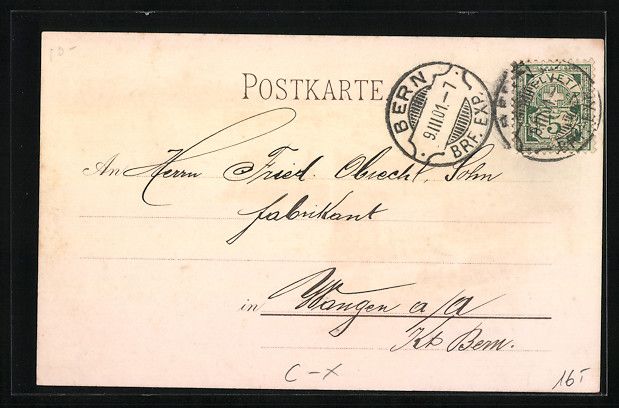 POSTKARTE
BERN
9.III.01.-7
BRF. EXP.
HELVETIA
5
An Herrn Fried. Obrecht, Sohn
fabrikant
in Wangen a/A
Kt Bern.
C-X
16.-